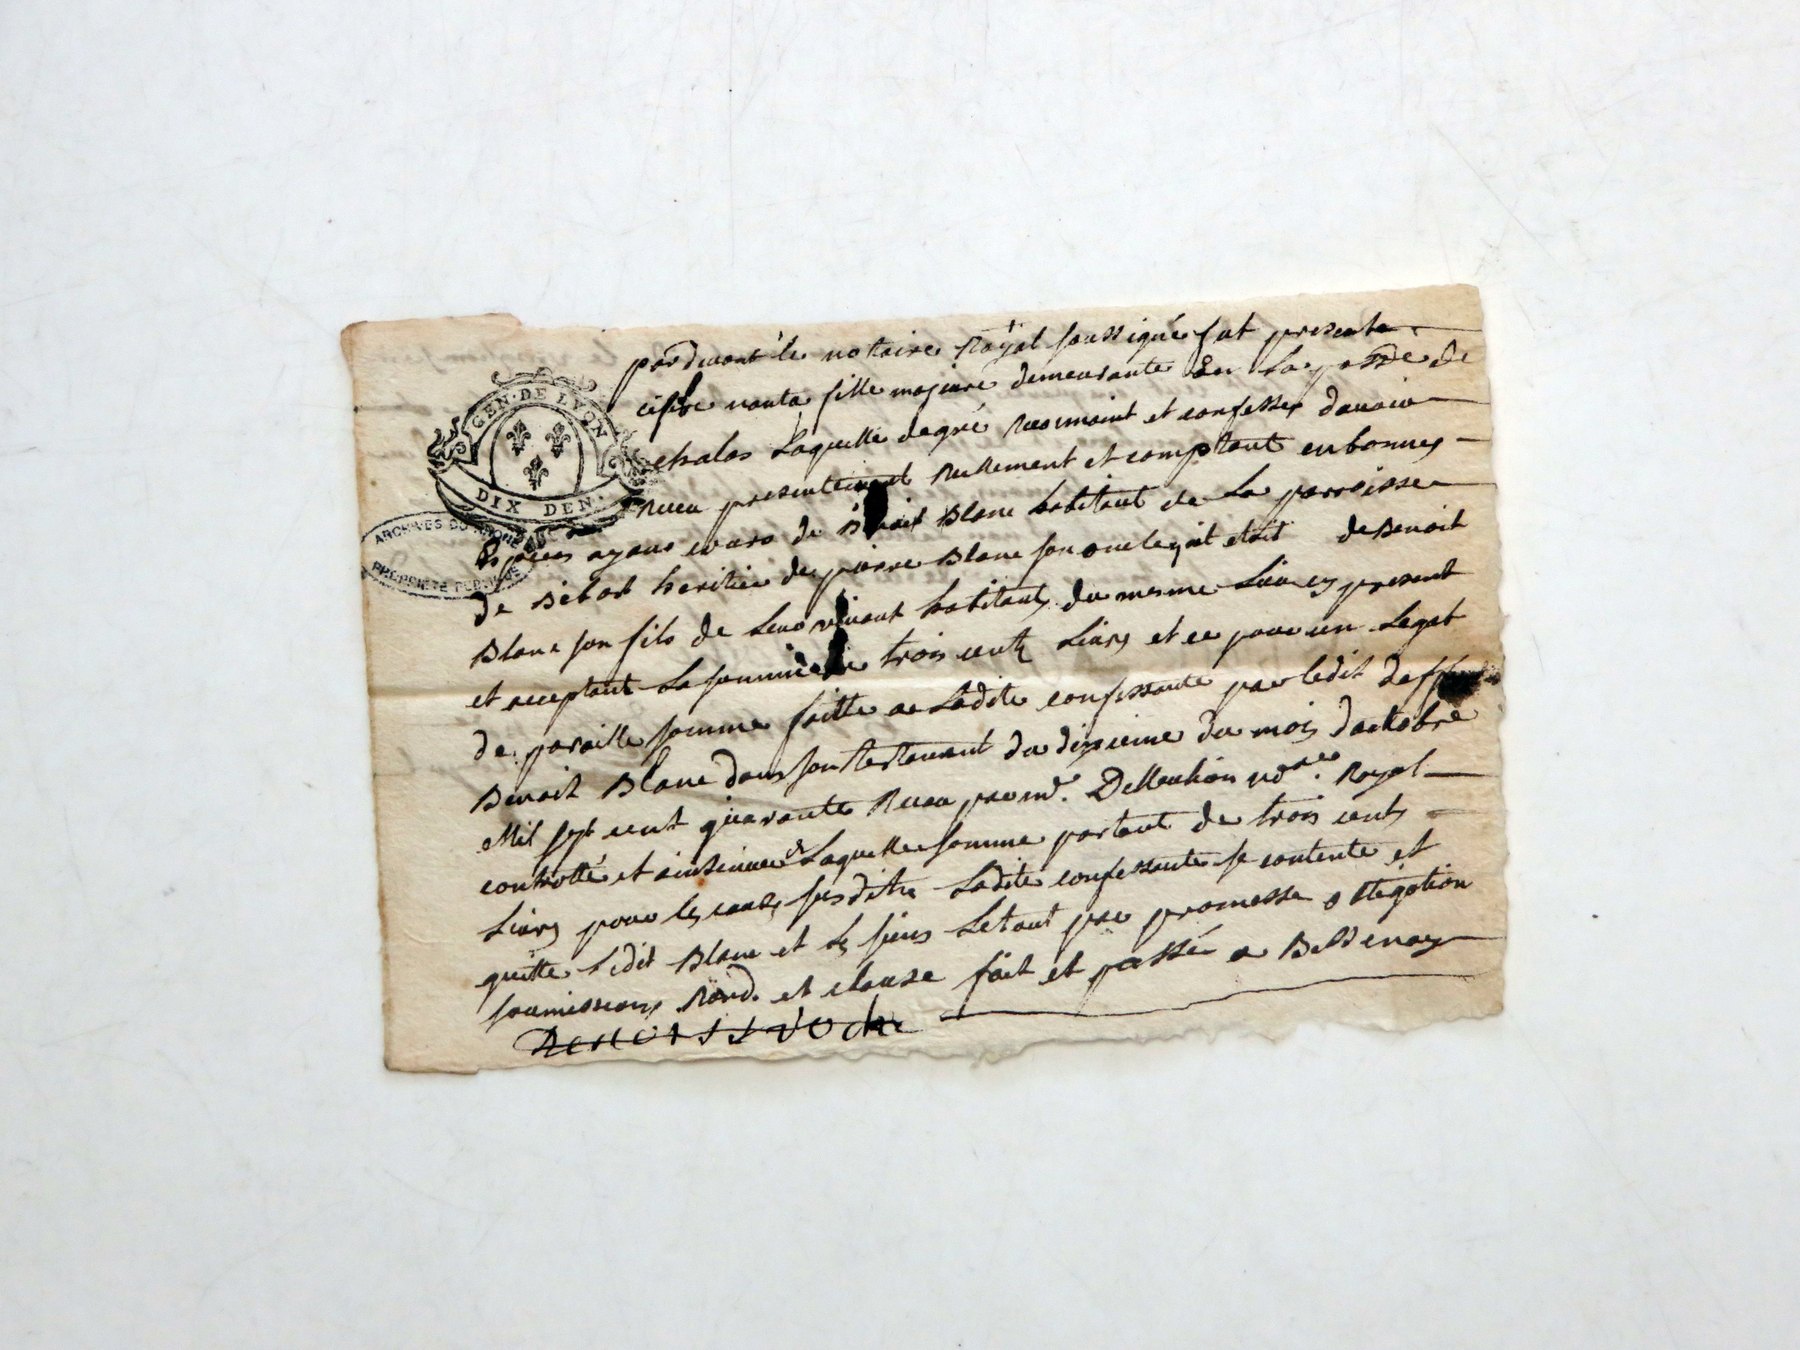 GEN·DE LYON
DIX DEN·
ARCHIVES DU RHONE
PROPRIETE PUBLIQUE
pardevant le notaire Royal soussigné fut presente
nanta fille majeure demeurante en La passe de
chalas Laquelle degré reconnoint et confesse davoir
Receu presentement Reellement et comptant en bonnes
Especes ayans cours de Benoit Blanc habitant de La parroisse
de Bibost heritier de pierre Blanc son oncle qui etoit de Benoit
Blanc son fils de leur vivant habitants du mesme Lieu cy present
et acceptant La somme de trois cents Livres et ce pour un Legat
de pareille somme faitte a Ladite confessante par ledit deffunt
Benoit Blanc dans son testament du dixieme du mois doctobre
Mil sept cent quarante Receu par md. no.re Royal
controllé et insinué Laquelle somme partant de trois cents
Livres pour les causes susdittes Ladite confessante se contente et
quitte Ledit Blanc et les siens Le tout par promesse obligation
soumissions Renōd. et clause fait et passé a Bessenay